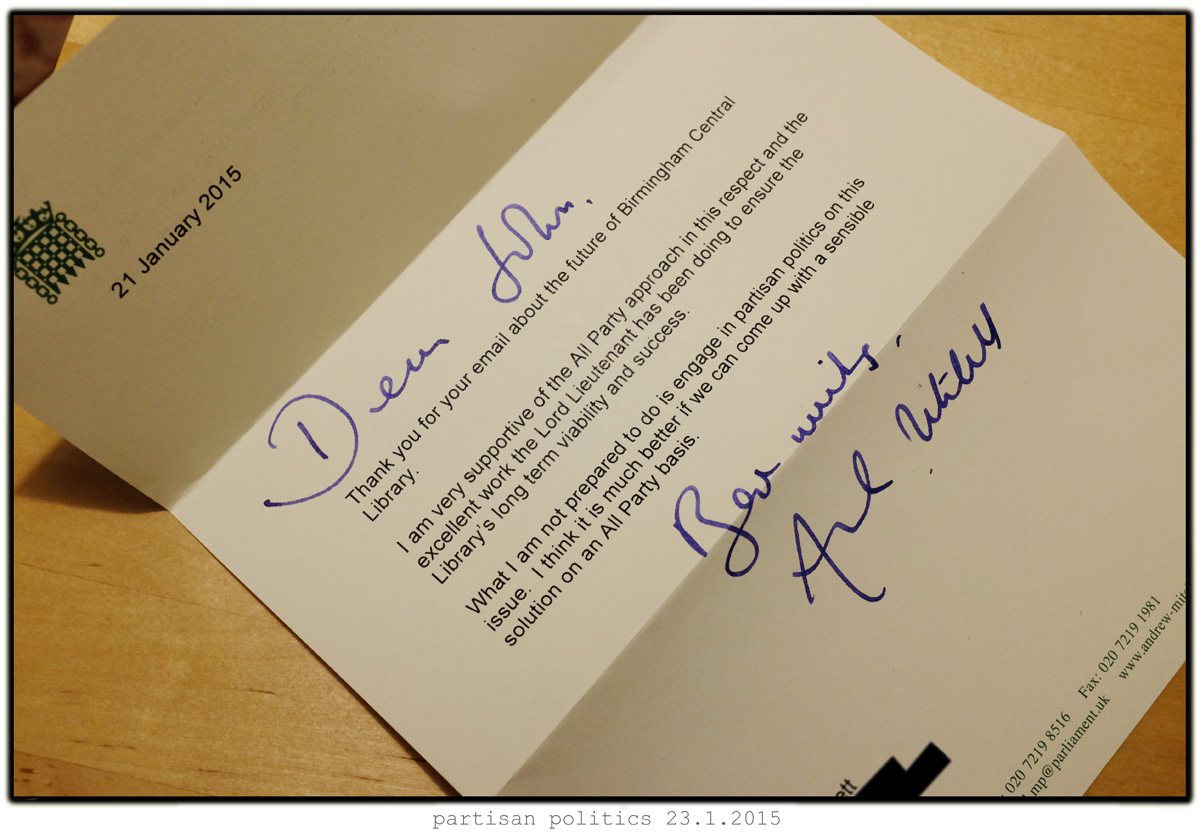 21 January 2015
Dear John.
Thank you for your email about the future of Birmingham Central
Library.
I am very supportive of the All Party approach in this respect and the
excellent work the Lord Lieutenant has been doing to ensure the
Library's long term viability and success.
What I am not prepared to do is engage in partisan politics on this
issue. I think it is much better if we can come up with a sensible
solution on an All Party basis.
Best wishes.
Andrew Mitchell
ett
020 7219 8516 Fax: 020 7219 1981
mp@parliament.uk www.andrew-mitc
partisan politics 23.1.2015